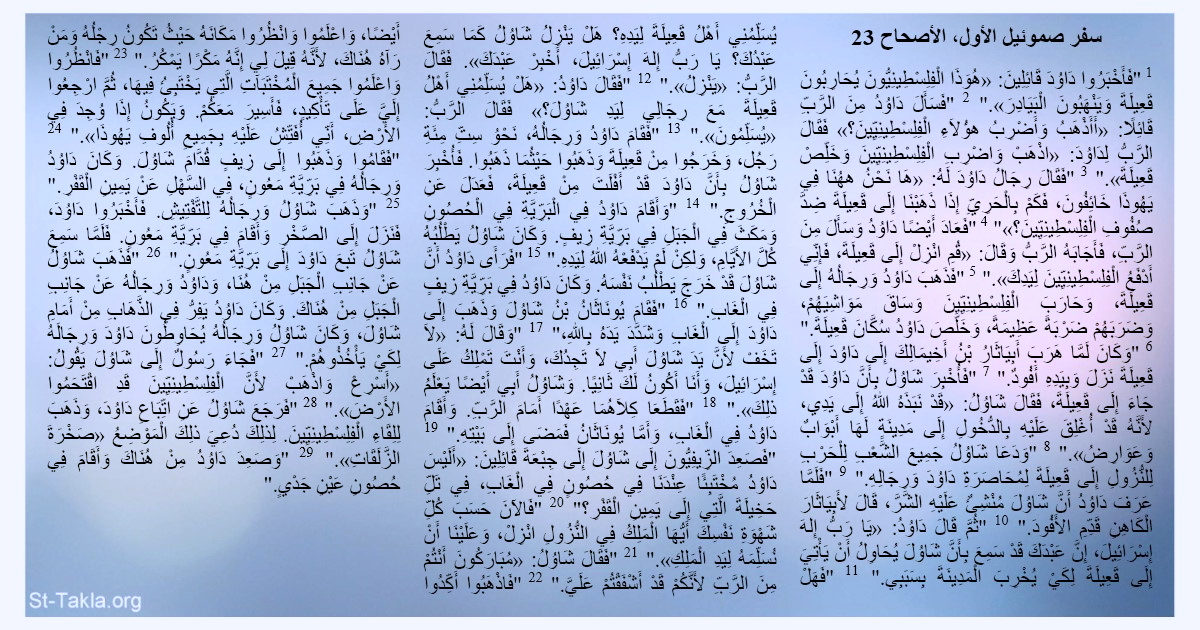 سفر صموئيل الأول، الأصحاح 23
1 "فَأَخْبَرُوا دَاوُدَ قَائِلِينَ: «هُوَذَا الْفِلِسْطِينِيُّونَ يُحَارِبُونَ
قَعِيلَةَ وَيَنْهَبُونَ الْبَيَادِرَ»." 2 "فَسَأَلَ دَاوُدُ مِنَ الرَّبِّ
قَائِلًا: «أَأَذْهَبُ وَأَضْرِبُ هؤُلاَءِ الْفِلِسْطِينِيِّينَ؟» فَقَالَ
الرَّبُّ لِدَاوُدَ: «اذْهَبْ وَاضْرِبِ الْفِلِسْطِينِيِّينَ وَخَلِّصْ
قَعِيلَةَ»." 3 "فَقَالَ رِجَالُ دَاوُدَ لَهُ: «هَا نَحْنُ ههُنَا فِي
يَهُوذَا خَائِفُونَ، فَكَمْ بِالْحَرِيِّ إِذَا ذَهَبْنَا إِلَى قَعِيلَةَ ضِدَّ
صُفُوفِ الْفِلِسْطِينِيِّينَ؟»" 4 "فَعَادَ أَيْضًا دَاوُدُ وَسَأَلَ مِنَ
الرَّبِّ، فَأَجَابَهُ الرَّبُّ وَقَالَ: «قُمِ انْزِلْ إِلَى قَعِيلَةَ، فَإِنِّي
أَدْفَعُ الْفِلِسْطِينِيِّينَ لِيَدِكَ»." 5 "فَذَهَبَ دَاوُدُ وَرِجَالُهُ إِلَى
قَعِيلَةَ، وَحَارَبَ الْفِلِسْطِينِيِّينَ وَسَاقَ مَوَاشِيَهُمْ،
وَضَرَبَهُمْ ضَرْبَةً عَظِيمَةً، وَخَلَّصَ دَاوُدُ سُكَّانَ قَعِيلَةَ."
6 "وَكَانَ لَمَّا هَرَبَ أَبِيَاثَارُ بْنُ أَخِيمَالِكَ إِلَى دَاوُدَ إِلَى
قَعِيلَةَ نَزَلَ وَبِيَدِهِ أَفُودٌ." 7 "فَأُخْبِرَ شَاوُلُ بِأَنَّ دَاوُدَ قَدْ
جَاءَ إِلَى قَعِيلَةَ، فَقَالَ شَاوُلُ: «قَدْ نَبَذَهُ اللهُ إِلَى يَدِي،
لأَنَّهُ قَدْ أُغْلِقَ عَلَيْهِ بِالدُّخُولِ إِلَى مَدِينَةٍ لَهَا أَبْوَابٌ
وَعَوَارِضُ»." 8 "وَدَعَا شَاوُلُ جَمِيعَ الشَّعْبِ لِلْحَرْبِ
لِلنُّزُولِ إِلَى قَعِيلَةَ لِمُحَاصَرَةِ دَاوُدَ وَرِجَالِهِ." 9 "فَلَمَّا
عَرَفَ دَاوُدُ أَنَّ شَاوُلَ مُنْشِئٌ عَلَيْهِ الشَّرَّ، قَالَ لأَبِيَاثَارَ
الْكَاهِنِ قَدِّمِ الأَفُودَ." 10 "ثُمَّ قَالَ دَاوُدُ: «يَا رَبُّ إِلهَ
إِسْرَائِيلَ، إِنَّ عَبْدَكَ قَدْ سَمِعَ بِأَنَّ شَاوُلَ يُحَاوِلُ أَنْ يَأْتِيَ
إِلَى قَعِيلَةَ لِكَيْ يُخْرِبَ الْمَدِينَةَ بِسَبَبِي." 11 "فَهَلْ
يُسَلِّمُنِي أَهْلُ قَعِيلَةَ لِيَدِهِ؟ هَلْ يَنْزِلُ شَاوُلُ كَمَا سَمِعَ
عَبْدُكَ؟ يَا رَبُّ إِلهَ إِسْرَائِيلَ، أَخْبِرْ عَبْدَكَ». فَقَالَ
الرَّبُّ: «يَنْزِلُ»." 12 "فَقَالَ دَاوُدُ: «هَلْ يُسَلِّمُنِي أَهْلُ
قَعِيلَةَ مَعَ رِجَالِي لِيَدِ شَاوُلَ؟» فَقَالَ الرَّبُّ:
«يُسَلِّمُونَ»." 13 "فَقَامَ دَاوُدُ وَرِجَالُهُ، نَحْوُ سِتِّ مِئَةِ
رَجُل، وَخَرَجُوا مِنْ قَعِيلَةَ وَذَهَبُوا حَيْثُمَا ذَهَبُوا. فَأُخْبِرَ
شَاوُلُ بِأَنَّ دَاوُدَ قَدْ أَفْلَتَ مِنْ قَعِيلَةَ، فَعَدَلَ عَنِ
الْخُرُوجِ." 14 "وَأَقَامَ دَاوُدُ فِي الْبَرِّيَّةِ فِي الْحُصُونِ
وَمَكَثَ فِي الْجَبَلِ فِي بَرِّيَّةِ زِيفٍ. وَكَانَ شَاوُلُ يَطْلُبُهُ
كُلَّ الأَيَّامِ، وَلكِنْ لَمْ يَدْفَعْهُ اللهُ لِيَدِهِ." 15 "فَرَأَى دَاوُدُ أَنَّ
شَاوُلَ قَدْ خَرَجَ يَطْلُبُ نَفْسَهُ. وَكَانَ دَاوُدُ فِي بَرِّيَّةِ زِيفٍ
فِي الْغَابِ." 16 "فَقَامَ يُونَاثَانُ بْنُ شَاوُلَ وَذَهَبَ إِلَى
دَاوُدَ إِلَى الْغَابِ وَشَدَّدَ يَدَهُ بِاللهِ،" 17 "وَقَالَ لَهُ: «لاَ
تَخَفْ لأَنَّ يَدَ شَاوُلَ أَبِي لاَ تَجِدُكَ، وَأَنْتَ تَمْلِكُ عَلَى
إِسْرَائِيلَ، وَأَنَا أَكُونُ لَكَ ثَانِيًا. وَشَاوُلُ أَبِي أَيْضًا يَعْلَمُ
ذلِكَ»." 18 "فَقَطَعَا كِلاَهُمَا عَهْدًا أَمَامَ الرَّبِّ. وَأَقَامَ
دَاوُدُ فِي الْغَابِ، وَأَمَّا يُونَاثَانُ فَمَضَى إِلَى بَيْتِهِ." 19
"فَصَعِدَ الزِّيفِيُّونَ إِلَى شَاوُلَ إِلَى جِبْعَةَ قَائِلِينَ: «أَلَيْسَ
دَاوُدُ مُخْتَبِئًا عِنْدَنَا فِي حُصُونٍ فِي الْغَابِ، فِي تَلِّ
حَخِيلَةَ الَّتِي إِلَى يَمِينِ الْقَفْرِ؟" 20 "فَالآنَ حَسَبَ كُلِّ
شَهْوَةِ نَفْسِكَ أَيُّهَا الْمَلِكُ فِي النُّزُولِ انْزِلْ، وَعَلَيْنَا أَنْ
نُسَلِّمَهُ لِيَدِ الْمَلِكِ»." 21 "فَقَالَ شَاوُلُ: «مُبَارَكُونَ أَنْتُمْ
مِنَ الرَّبِّ لأَنَّكُمْ قَدْ أَشْفَقْتُمْ عَلَيَّ." 22 "فَاذْهَبُوا أَكِّدُوا
أَيْضًا، وَاعْلَمُوا وَانْظُرُوا مَكَانَهُ حَيْثُ تَكُونُ رِجْلُهُ وَمَنْ
رَآهُ هُنَاكَ، لأَنَّهُ قِيلَ لِي إِنَّهُ مَكْرًا يَمْكُرُ." 23 "فَانْظُرُوا
وَاعْلَمُوا جَمِيعَ الْمُخْتَبَآتِ الَّتِي يَخْتَبِئُ فِيهَا، ثُمَّ ارْجِعُوا
إِلَيَّ عَلَى تَأْكِيدٍ، فَأَسِيرَ مَعَكُمْ. وَيَكُونُ إِذَا وُجِدَ فِي
الأَرْضِ، أَنِّي أُفَتِّشُ عَلَيْهِ بِجَمِيعِ أُلُوفِ يَهُوذَا»." 24
"فَقَامُوا وَذَهَبُوا إِلَى زِيفٍ قُدَّامَ شَاوُلَ. وَكَانَ دَاوُدُ
وَرِجَالُهُ فِي بَرِّيَّةِ مَعُونٍ، فِي السَّهْلِ عَنْ يَمِينِ الْقَفْرِ."
25 "وَذَهَبَ شَاوُلُ وَرِجَالُهُ لِلتَّفْتِيشِ. فَأَخْبَرُوا دَاوُدَ،
فَنَزَلَ إِلَى الصَّخْرِ وَأَقَامَ فِي بَرِّيَّةِ مَعُونٍ. فَلَمَّا سَمِعَ
شَاوُلُ تَبِعَ دَاوُدَ إِلَى بَرِّيَّةِ مَعُونٍ." 26 "فَذَهَبَ شَاوُلُ
عَنْ جَانِبِ الْجَبَلِ مِنْ هُنَا، وَدَاوُدُ وَرِجَالُهُ عَنْ جَانِبِ
الْجَبَلِ مِنْ هُنَاكَ. وَكَانَ دَاوُدُ يَفِرُّ فِي الذَّهَابِ مِنْ أَمَامِ
شَاوُلَ، وَكَانَ شَاوُلُ وَرِجَالُهُ يُحَاوِطُونَ دَاوُدَ وَرِجَالَهُ
لِكَيْ يَأْخُذُوهُمْ." 27 "فَجَاءَ رَسُولٌ إِلَى شَاوُلَ يَقُولُ:
«أَسْرِعْ وَاذْهَبْ لأَنَّ الْفِلِسْطِينِيِّينَ قَدِ اقْتَحَمُوا
الأَرْضَ»." 28 "فَرَجَعَ شَاوُلُ عَنِ اتِّبَاعِ دَاوُدَ، وَذَهَبَ
لِلِقَاءِ الْفِلِسْطِينِيِّينَ. لِذلِكَ دُعِيَ ذلِكَ الْمَوْضِعُ «صَخْرَةَ
الزَّلَقَاتِ»." 29 "وَصَعِدَ دَاوُدُ مِنْ هُنَاكَ وَأَقَامَ فِي
حُصُونِ عَيْنِ جَدْيٍ."
St-Takla.org